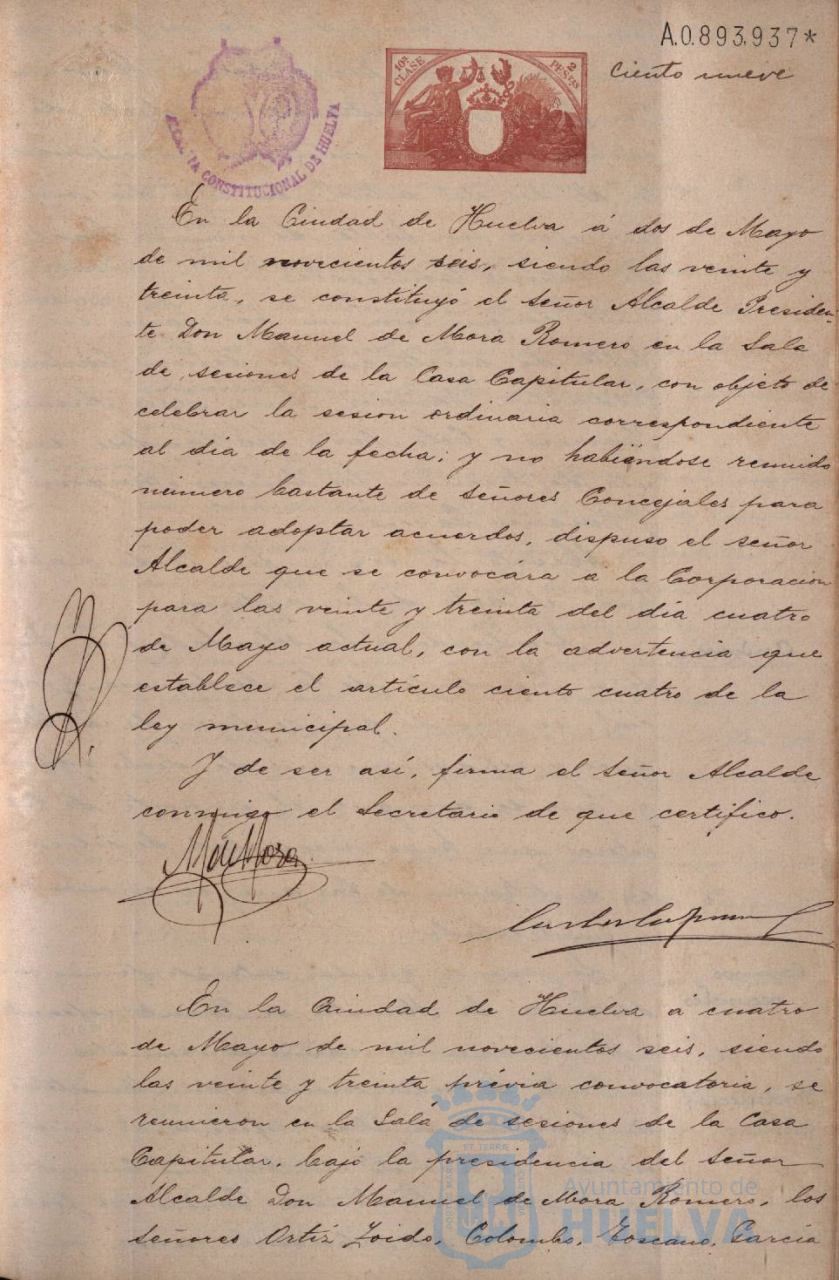 A.0.893.937*
10ª CLASE
2 PESETAS
Ciento nueve
CONSTITUCIONAL DE HUELVA
En la Ciudad de Huelva á dos de Mayo
de mil novecientos seis, siendo las veinte y
treinta, se constituyó el señor Alcalde Presiden
te Don Manuel de Mora Romero en la Sala
de sesiones de la Casa Capitular, con objeto de
celebrar la sesion ordinaria correspondiente
al dia de la fecha; y no habiéndose reunido
número bastante de señores Concejales para
poder adoptar acuerdos, dispuso el señor
Alcalde que se convocára a la Corporacion
para las veinte y treinta del dia cuatro
de Mayo actual, con la advertencia que
establece el artículo ciento cuatro de la
ley municipal.
Y de ser así, firma el señor Alcalde
conmigo el Secretario de que certifico.
M de Mora
En la Ciudad de Huelva á cuatro
de Mayo de mil novecientos seis, siendo
las veinte y treinta prévia convocatoria, se
reunieron en la Sala de sesiones de la Casa
Capitular, bajo la presidencia del señor
Alcalde Don Manuel de Mora Romero, los
señores Ortiz Zoido, Colombo, Toscano, García
Ayuntamiento de
HUELVA